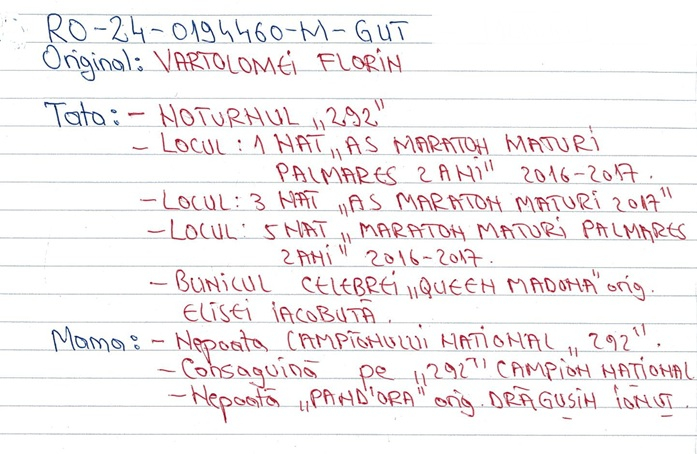 RO-24-0194460-M-GUT
Original: VARTOLOMEI FLORIN
Tata: - NOTURNUL „292”
- LOCUL: 1 NAT „AS MARATON MATURI
PALMARES 2 ANI” 2016-2017.
- LOCUL: 3 NAT „AS MARATON MATURI 2017”
- LOCUL: 5 NAT „MARATON MATURI PALMARES
2ANI” 2016-2017.
- BUNICUL CELEBREI „QUEEN MADONA” orig.
ELISEI IACOBUTĂ.
Mama: - Nepoata CAMPIONULUI NATIONAL „292”.
- Consaguină pe „292” CAMPION NATIONAL
- Nepoată „PAND'ORA” orig. DRĂGUSIN IONUȚ.